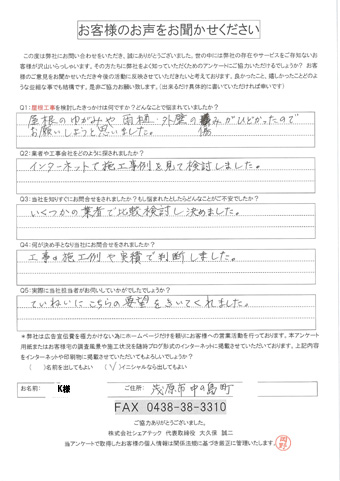 お客様のお声をお聞かせください
この度は弊社にお問い合わせをいただき、誠にありがとうございました。世の中には弊社の存在やサービスをご存知ないお
客様が沢山いらっしゃいます。その方たちに弊社をよく知っていただくためのアンケートにご協力いただけるでしょうか? お客
様のご意見をお聞かせいただき今後の活動に反映させていただきたいと考えております。良かったこと、嬉しかったことどのよ
うな些細な事でも結構です。是非ご協力お願い致します。(出来るだけ具体的に書いていただければ幸いです)
Q1:屋根工事を検討したきっかけは何ですか?どんなことで悩まれていましたか?
屋根のゆがみや雨樋・外壁の傷みがひどかったので
お願いしようと思いました。
Q2:業者や工事会社をどのように探されましたか?
インターネットで施工事例を見て検討しました。
Q3:当社を知りすぐにお問合せをされましたか?もし悩まれたとしたらどんなことがご不安でしたか?
いくつかの業者で比較検討し決めました。
Q4:何が決め手となり当社にお問合せをされましたか?
工事の施工例や実積で判断しました。
Q5:実際に当社担当者がお伺いしていかがでしたでしょうか?
ていねいにこちらの要望をきいてくれました。
*弊社は広告宣伝費を極力かけない為にホームページだけを頼りにお客様への営業活動を行っております。本アンケート
用紙またはお客様宅の調査風景や施工状況を随時ブログ形式のインターネットに掲載させていただいております。上記内容
をインターネットや印刷物に掲載させていただいてもよろしいでしょうか?
( )名前を出してもよい (√)イニシャルなら出してもよい
お名前: K様 ご住所: 茂原市中の島町
FAX 0438-38-3310
ご協力ありがとうございました。
株式会社シェアテック 代表取締役 大久保 誠二
当アンケートで取得したお客様の個人情報は関係法規に基づき厳正に管理いたします。